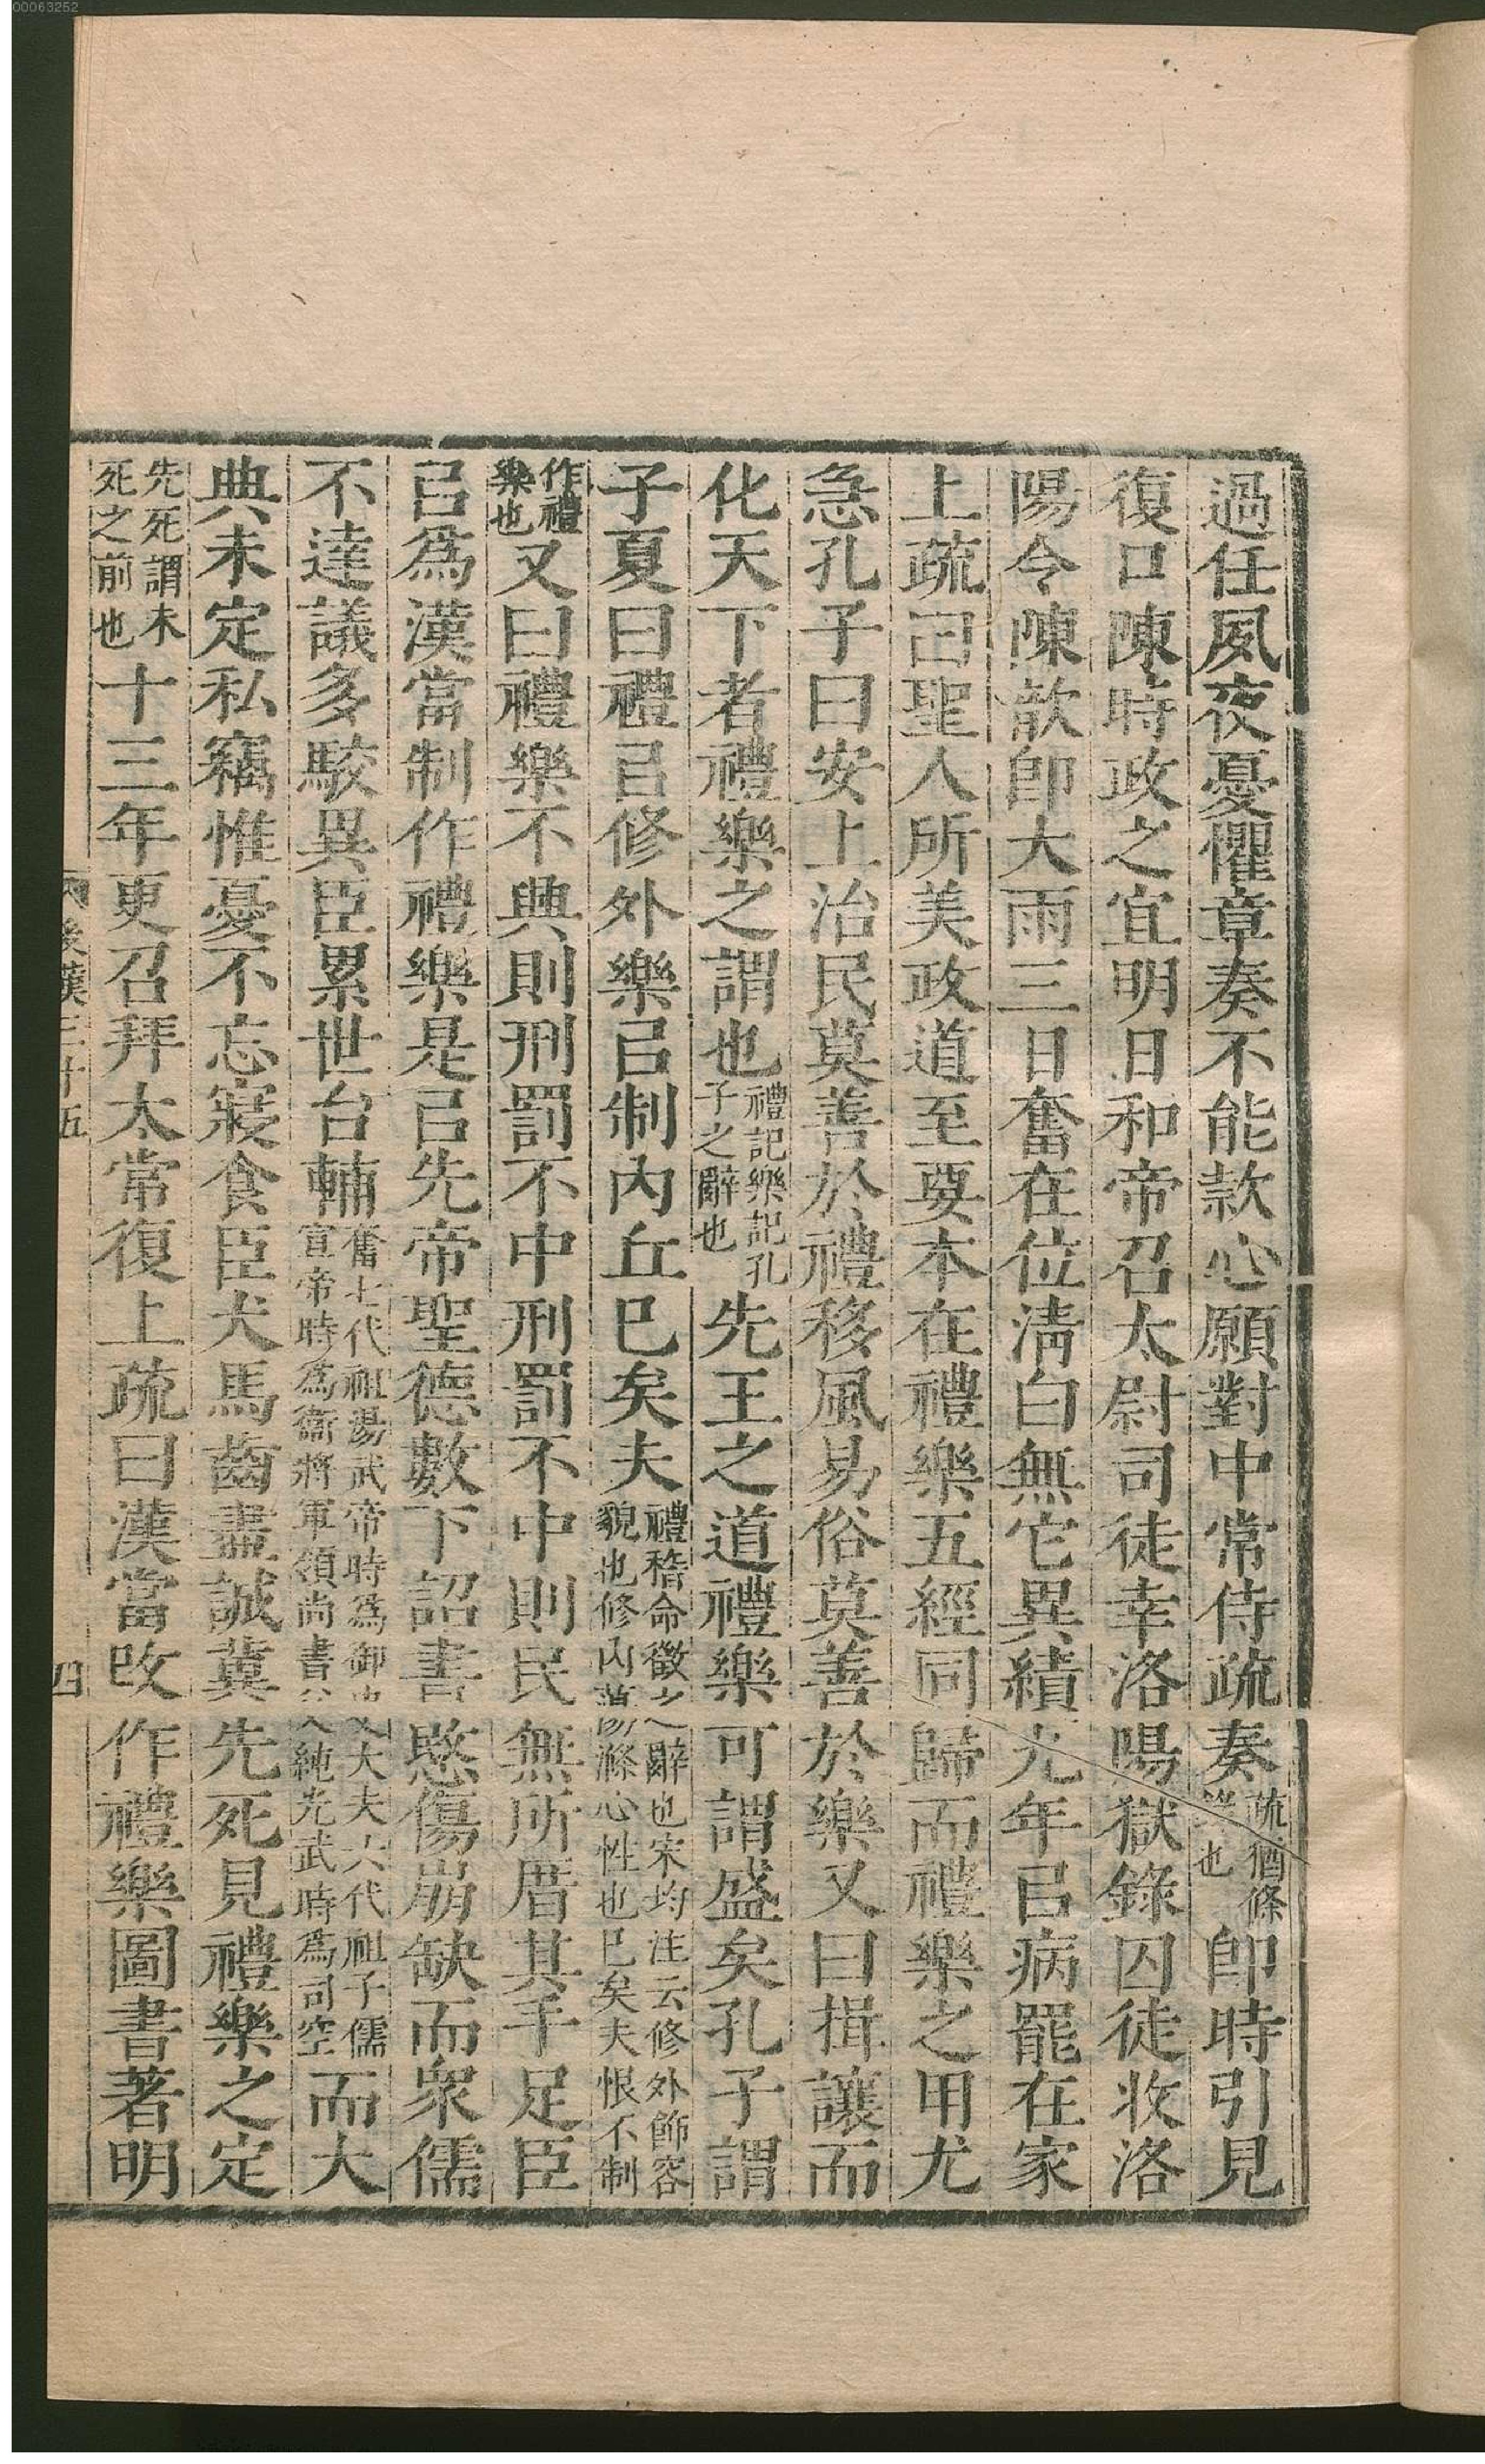 00063252
過任夙夜憂懼章奏不能款心願對中常侍疏奏疏猶條錄也即時引見
復口陳時政之宜明日和帝召太尉司徒幸洛陽獄錄囚徒收洛
陽令陳歆即大雨三日奮在位淸白無它異績九年㠯病罷在家
上疏曰聖人所美政道至要本在禮樂五經同歸而禮樂之用尤
急孔子曰安上治民莫善於禮移風易俗莫善於樂又曰揖讓而
化天下者禮樂之謂也禮記樂記孔子之辭也先王之道禮樂可謂盛矣孔子謂
子夏曰禮㠯修外樂㠯制內丘已矣夫禮稽命徵之辭也宋均注云修外飾容貌也修內蕩滌心性也已矣夫恨不制
作禮樂也又曰禮樂不興則刑罰不中刑罰不中則民無所厝其手足臣
㠯爲漢當制作禮樂是㠯先帝聖德數下詔書愍傷崩缺而衆儒
不達議多駮異臣累世台輔奮七代祖湯武帝時爲御史大夫六代祖子儒宣帝時爲衞將軍領尚書父純光武時爲司空而大
典未定私竊惟憂不忘寢食臣犬馬齒盡誠冀先死見禮樂之定
先死謂未死之前也十三年更召拜太常復上疏曰漢當改作禮樂圖書著明
後漢三十五 四